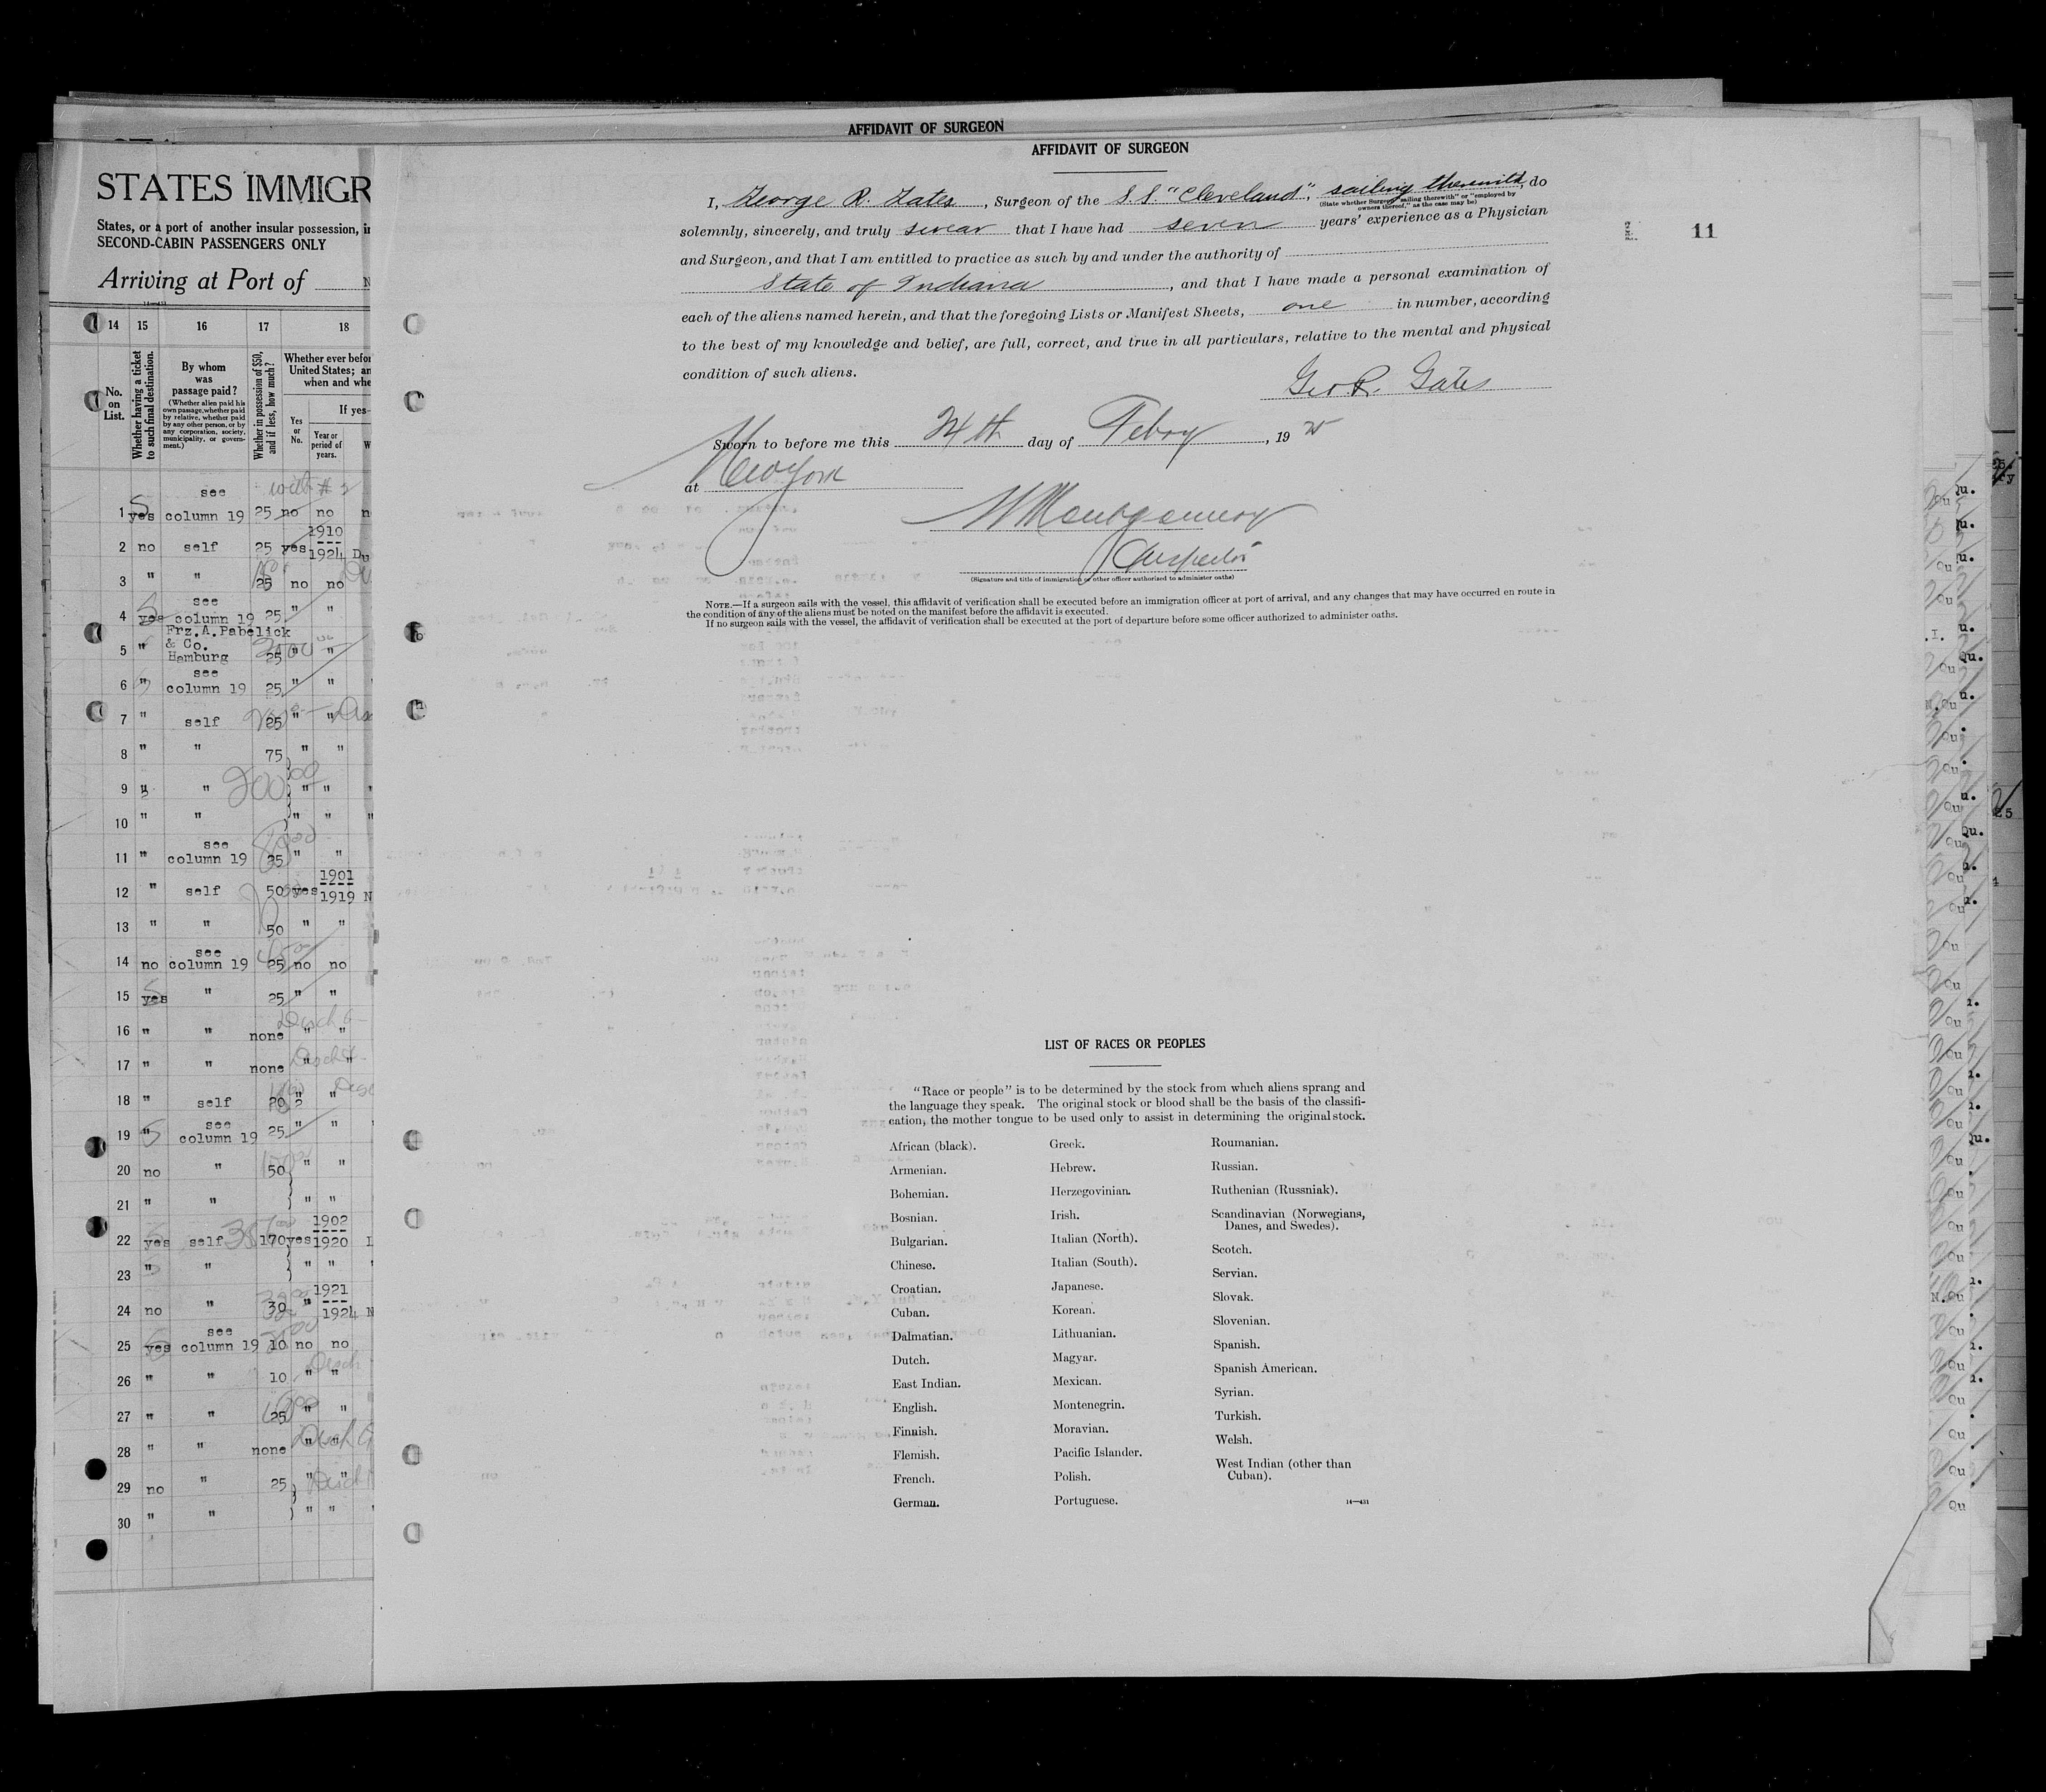 AFFIDAVIT OF SURGEON
STATES IMMIGR
States, or a port of another insular possession, in
SECOND-CABIN PASSENGERS ONLY
Arriving at Port of
14 15 16 17 18
No. on List.
Whether having a ticket to such final destination.
By whom was passage paid?
(Whether alien paid his own passage, whether paid by relative, whether paid by any other person, or by any corporation, society, municipality, or government.)
Whether in possession of $50, and if less, how much?
Whether ever befor
United States; an
when and whe
If yes—
Yes or No.
Year or period of years.
see with # 2
1 yes column 19 25 no no
1910
2 no self 25 yes 1924 Du
3 " " 25 no no
see
4 yes column 19 25 " "
Frz. A. Pabelick
5 " & Co. 25 " "
Hamburg
see
6 " column 19 25 " "
7 " self 25 " "
8 " " 75 " "
9 " " 200 00 " "
10 " " " "
see
11 " column 19 25 " "
1901
12 " self 50 yes 1919 N
13 " " 50 " "
see
14 no column 19 25 no no
15 yes " 25 " "
16 " " none " "
17 " " none " "
18 " self 20 " "
see
19 " column 19 25 " "
20 no " 50 " "
21 " " " "
1902
22 yes self 170 yes 1920
23 " " " "
1921
24 no " 30 " 1924 N
see
25 yes column 19 10 no no
26 " " 10 " "
27 " " 25 " "
28 " " none " "
29 no " 25 " "
30 " " " "
AFFIDAVIT OF SURGEON
I, George R. Gates, Surgeon of the S.S. "Cleveland", sailing therewith, do
(State whether Surgeon "sailing therewith" or "employed by owners thereof," as the case may be)
solemnly, sincerely, and truly swear that I have had seven years' experience as a Physician
and Surgeon, and that I am entitled to practice as such by and under the authority of
State of Indiana, and that I have made a personal examination of
each of the aliens named herein, and that the foregoing Lists or Manifest Sheets, one in number, according
to the best of my knowledge and belief, are full, correct, and true in all particulars, relative to the mental and physical
condition of such aliens.
Geo R. Gates
Sworn to before me this 24th day of Febry, 19 25
at New York
W Montgomery
Inspector
(Signature and title of immigration or other officer authorized to administer oaths)
NOTE.—If a surgeon sails with the vessel, this affidavit of verification shall be executed before an immigration officer at port of arrival, and any changes that may have occurred en route in
the condition of any of the aliens must be noted on the manifest before the affidavit is executed.
If no surgeon sails with the vessel, the affidavit of verification shall be executed at the port of departure before some officer authorized to administer oaths.
11
LIST OF RACES OR PEOPLES
"Race or people" is to be determined by the stock from which aliens sprang and
the language they speak. The original stock or blood shall be the basis of the classifi-
cation, the mother tongue to be used only to assist in determining the original stock.
African (black).
Armenian.
Bohemian.
Bosnian.
Bulgarian.
Chinese.
Croatian.
Cuban.
Dalmatian.
Dutch.
East Indian.
English.
Finnish.
Flemish.
French.
German.
Greek.
Hebrew.
Herzegovinian.
Irish.
Italian (North).
Italian (South).
Japanese.
Korean.
Lithuanian.
Magyar.
Mexican.
Montenegrin.
Moravian.
Pacific Islander.
Polish.
Portuguese.
Roumanian.
Russian.
Ruthenian (Russniak).
Scandinavian (Norwegians,
Danes, and Swedes).
Scotch.
Servian.
Slovak.
Slovenian.
Spanish.
Spanish American.
Syrian.
Turkish.
Welsh.
West Indian (other than
Cuban).
14—431